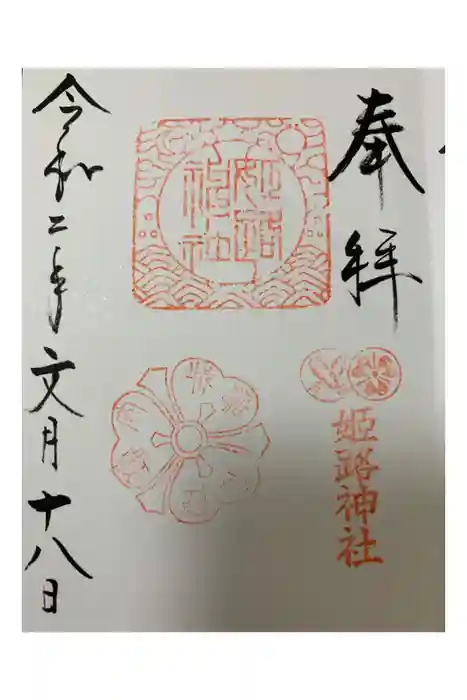 奉拝
姫路神社
姫路神社
令和二年文月十八日